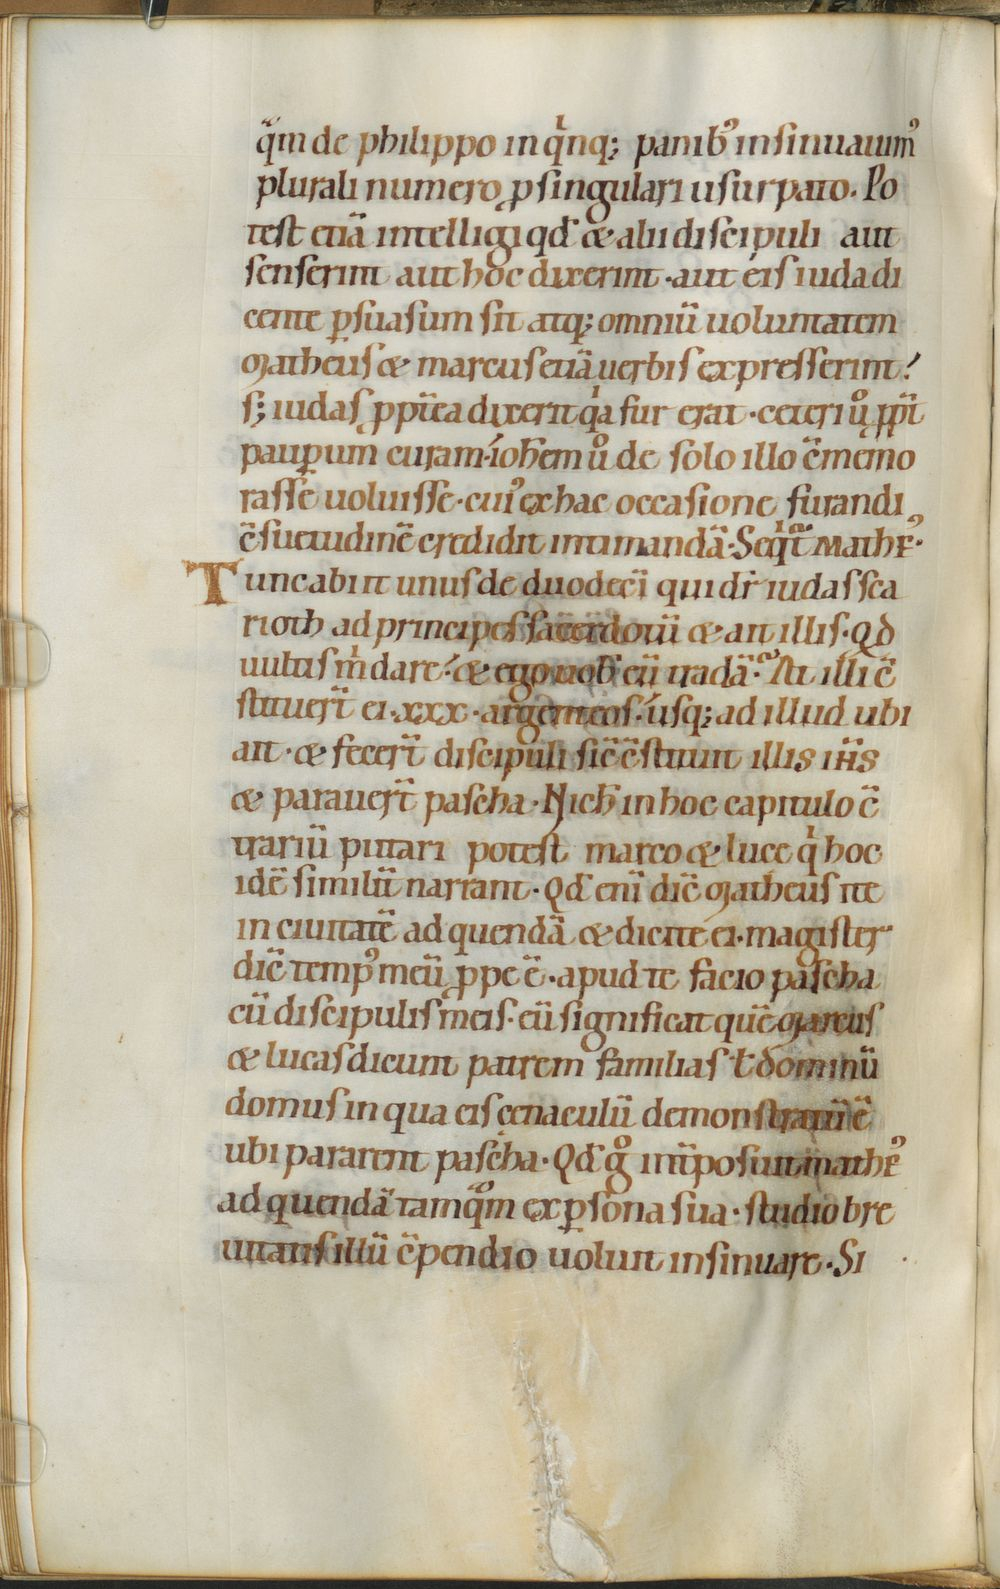 q̃m de philippo in qͥnq; panibꝰ insinuauimꝰ
plurali numero ꝓ singulari usurpato. Po
test etiā intelligi qđ & alii discipuli aut
senserint aut hoc dixerint · aut eis iuda di
cente ꝑsuasum sit atq; omniū uoluntatem
Matheus & marcus etiā uerbis expresserint?
s; iudas ꝓpt̄ea dixerit qͥa fur erat · ceteri ůͦ ꝓpt̄
pauꝑum curam. ioħem ůͦ de solo illo c̄memo
rasse uoluisse · cuiꝰ ex hac occasione furandi
c̄suetudinē credidit intimandā · Seqͥt̃ Mathꝰ ·
Tunc abiit unus de duodecī qui dr̄ iudas sca
rioth ad principes sacerdotū & ait illis · Qđ
uultis m̄ dare? & ego uoƀ eū tradā · At illi c̄
stituer̄t ei · xxx · argenteos · usq; ad illud ubi
ait · & fecer̄t discipuli sic̄ c̄stituit illis ih̄s
& parauer̄t pascha · Nicħ in hoc capitulo c̄
trariū putari potest marco & luce qͥ hoc
idē similit̄ narrant · Qđ enī dic̄ Matheus ite
in ciuitatē ad quendā & dicite ei · magister
dic̄ tempꝰ meū ꝓpe ē · apud te facio pascha
cū discipulis meis · eū significat quē Marcus
& lucas dicunt patrem familias ł dominū
domus in qua eis cenaculū demonstratū ē
ubi pararent pascha · Qđ gͦ int̄posuit mathꝰ
ad quendā tamqͦm ex ꝑsona sua · studio bre
uitatis illū c̄pendio uoluit insinuare · Si